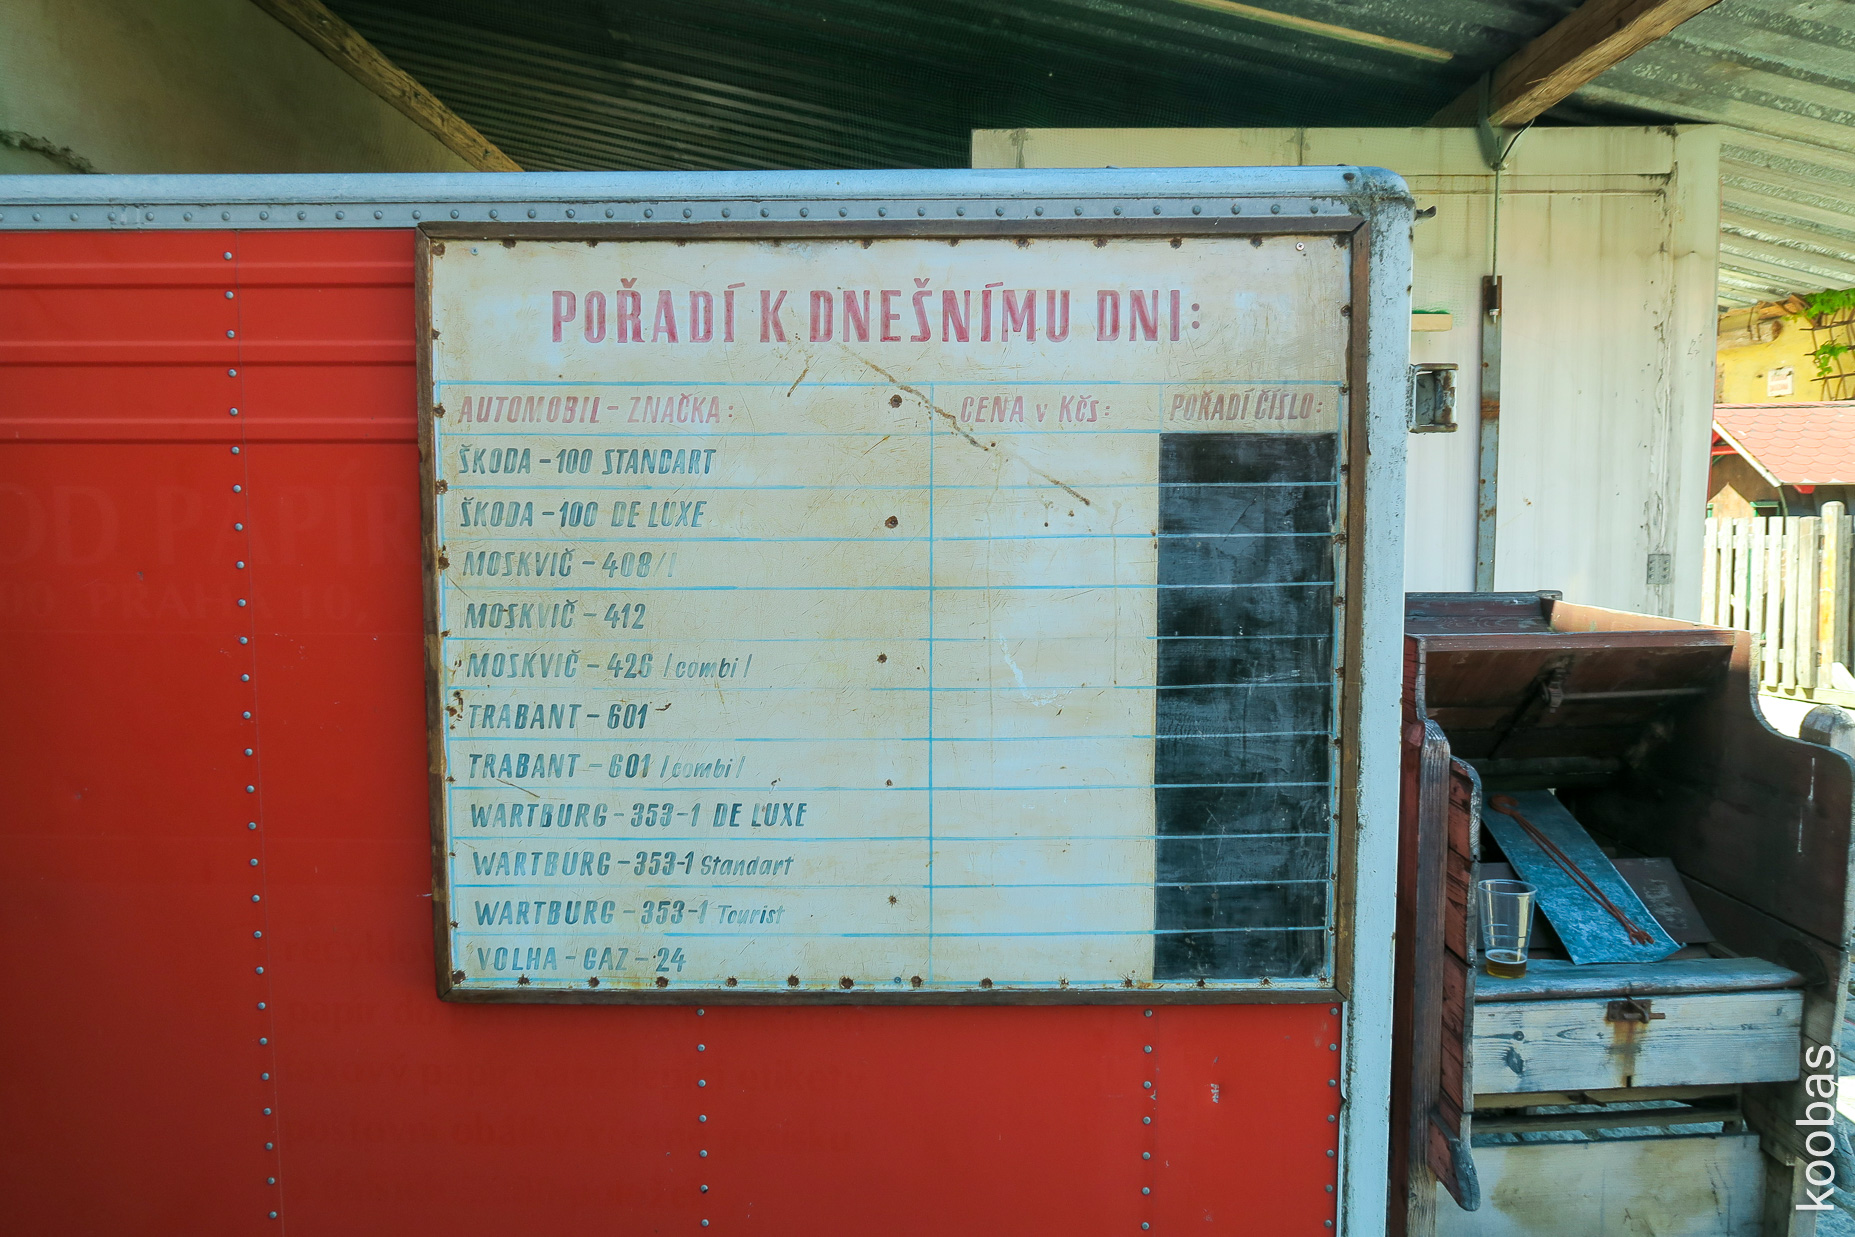 POŘADÍ K DNEŠNÍMU DNI:
AUTOMOBIL - ZNAČKA: CENA v Kčs: POŘADÍ ČÍSLO:
ŠKODA - 100 STANDART
ŠKODA - 100 DE LUXE
MOSKVIČ - 408/I
MOSKVIČ - 412
MOSKVIČ - 426 /combi/
TRABANT - 601
TRABANT - 601 /combi/
WARTBURG - 353-1 DE LUXE
WARTBURG - 353-1 Standart
WARTBURG - 353-1 Tourist
VOLHA - GAZ - 24
PRAHA 10,
koobas